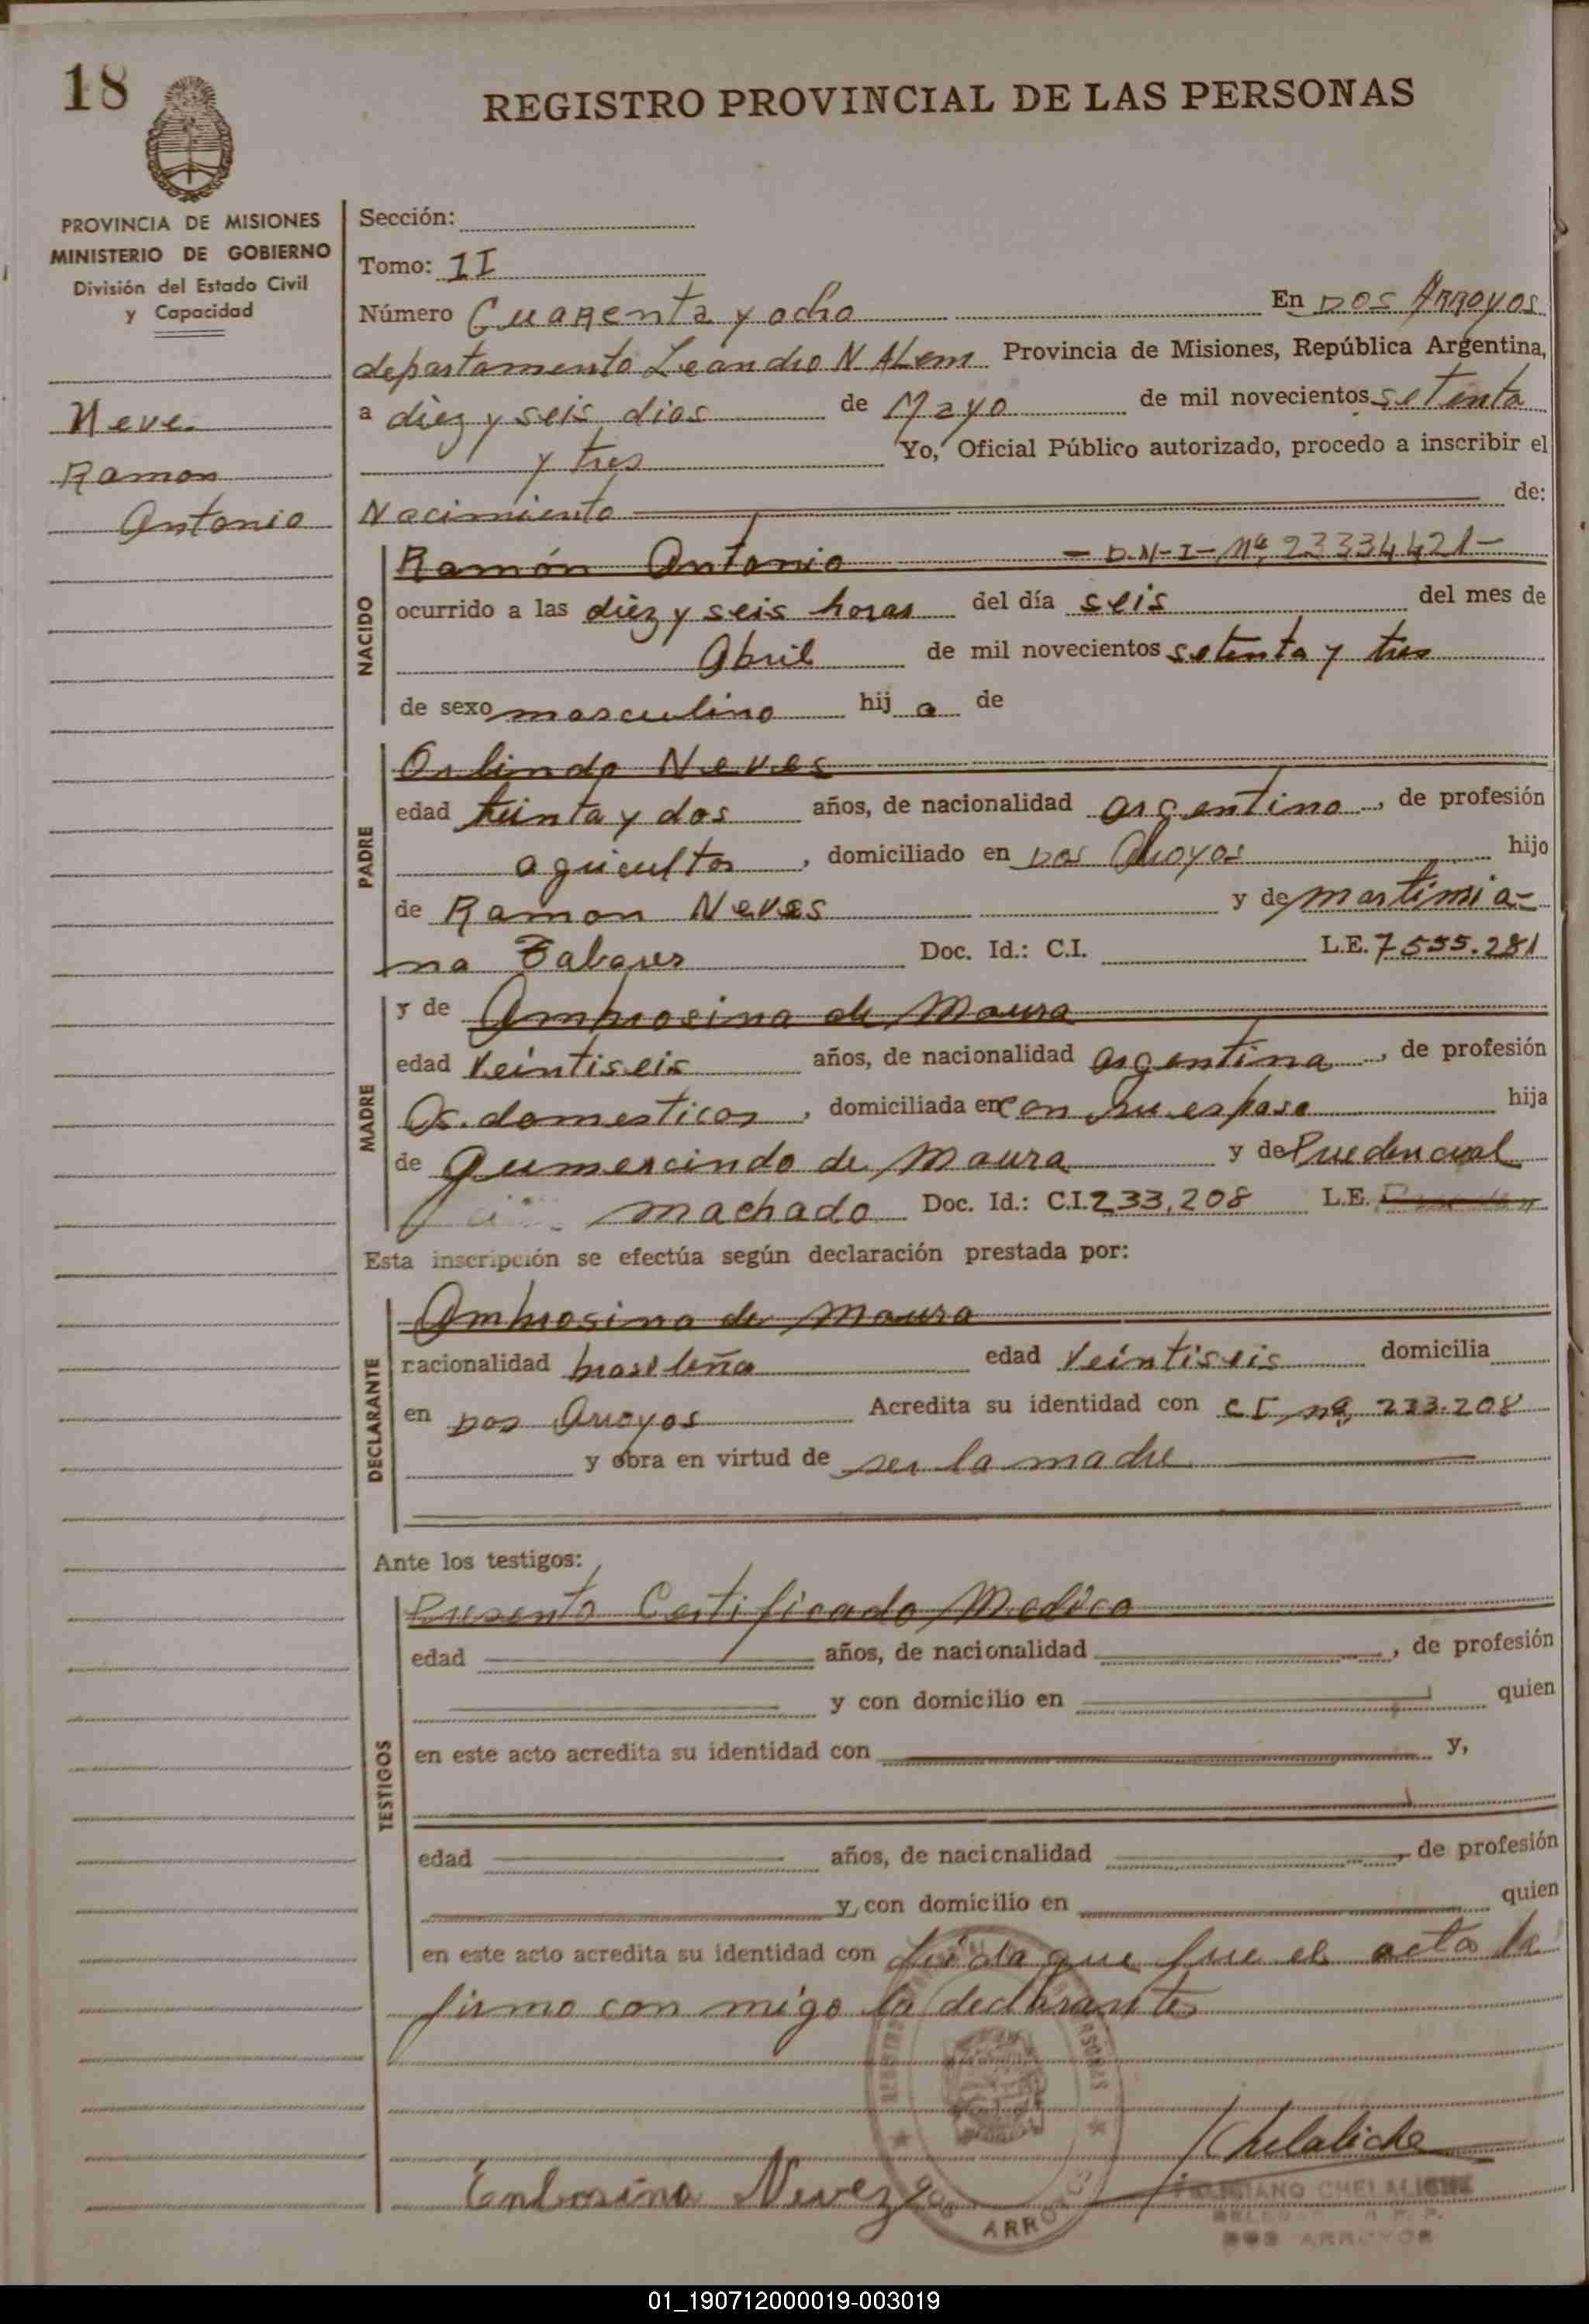 18
REGISTRO PROVINCIAL DE LAS PERSONAS
PROVINCIA DE MISIONES
MINISTERIO DE GOBIERNO
División del Estado Civil
y Capacidad
Neve.
Ramon
Antonio
Sección:
Tomo: II
Número Cuarenta y ocho En Dos Arroyos
departamento Leandro N Alem Provincia de Misiones, República Argentina,
a diez y seis dias de Mayo de mil novecientos setenta
y tres Yo, Oficial Público autorizado, procedo a inscribir el
Nacimiento de:
NACIDO
Ramón Antonio - D.N-I- Nº 23334421-
ocurrido a las diez y seis horas del día seis del mes de
Abril de mil novecientos setenta y tres
de sexo masculino hij o de
PADRE
Orlindo Neves
edad treinta y dos años, de nacionalidad argentino, de profesión
agricultor, domiciliado en Dos Arroyos hijo
de Ramon Neves y de martimia-
na Tabares Doc. Id.: C.I. L.E. 7555.281
MADRE
y de Ambrosina de Maura
edad Veintiseis años, de nacionalidad argentina, de profesión
Qs. domesticos, domiciliada en con su esposo hija
de Gumercindo de Maura y de
machado Doc. Id.: C.I. 233,208 L.E.
Esta inscripción se efectúa según declaración prestada por:
DECLARANTE
Ambrosina de Maura
nacionalidad brasileña edad Veintiseis domicilia
en Dos Arroyos Acredita su identidad con CI nº 233.208
y obra en virtud de ser la madre
Ante los testigos:
TESTIGOS
Presento Certificado Medico
edad años, de nacionalidad , de profesión
y con domicilio en quien
en este acto acredita su identidad con y,
edad años, de nacionalidad , de profesión
y con domicilio en quien
en este acto acredita su identidad con leida que fue el acta la
firmo con migo la declarante
Chelaliche
Enbrosina Nevez
ARROYOS
CHELALICHE
DOS ARROYOS
01_190712000019-003019